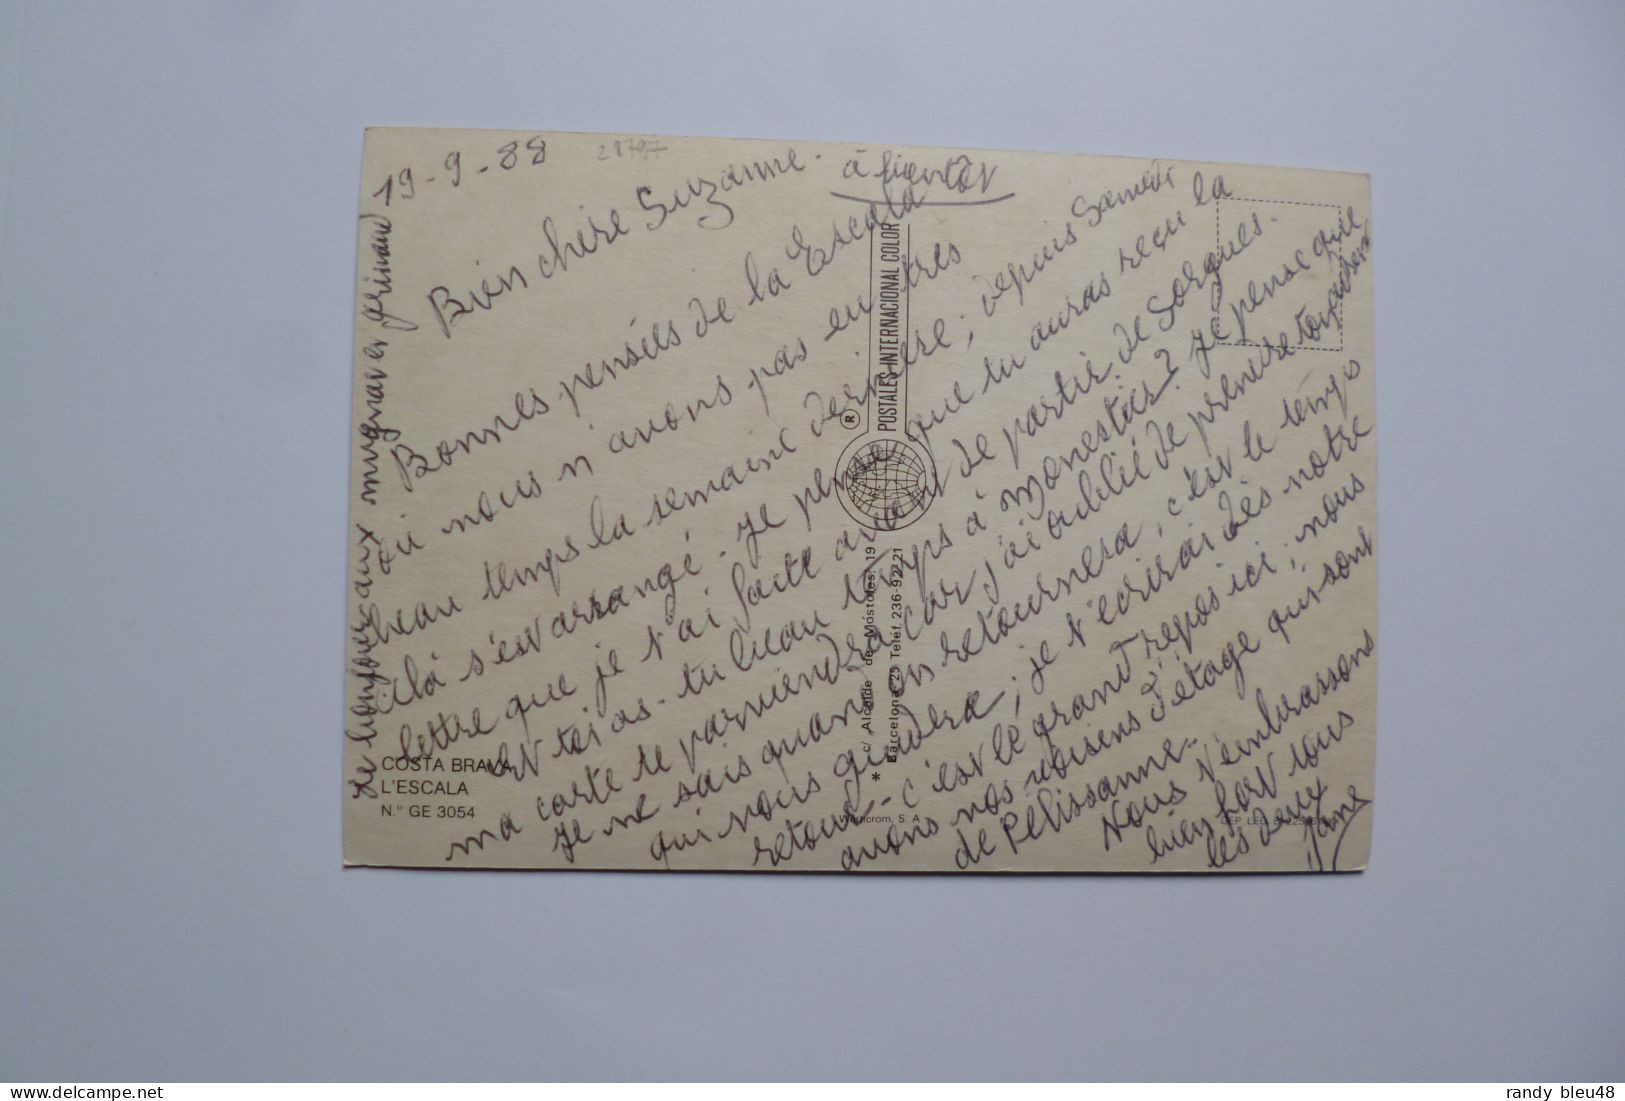 19-9-88
28797
à bientôt
Bien chère Suzanne.
Bonnes pensées de la Escala
où nous n'avons pas eu très
beau temps la semaine dernière; depuis Samedi
cela s'est arrangé. Je pense que tu auras reçu la
lettre que je t'ai faite avant de partir de Sorgues.
as-tu beau temps à Monestier? Je pense que
ma carte te parviendra car j'ai oublié de prendre ton
Je ne sais quand on retournera, c'est le temps
qui nous guidera; je t'écrirai dès notre
retour - c'est le grand repos ici; nous
avons nos voisins d'étage qui sont
de Pélissanne.
Nous t'embrassons
bien fort tous
les deux
Jane
le bonjour aux
COSTA BRAVA
L'ESCALA
N.° GE 3054
POSTALES INTERNACIONAL COLOR
®
* c/ Alcalde de Móstoles, 19
Barcelona-25 Teléf. 236-92-21
S. A
DEP. LEG. B.
randy bleu48